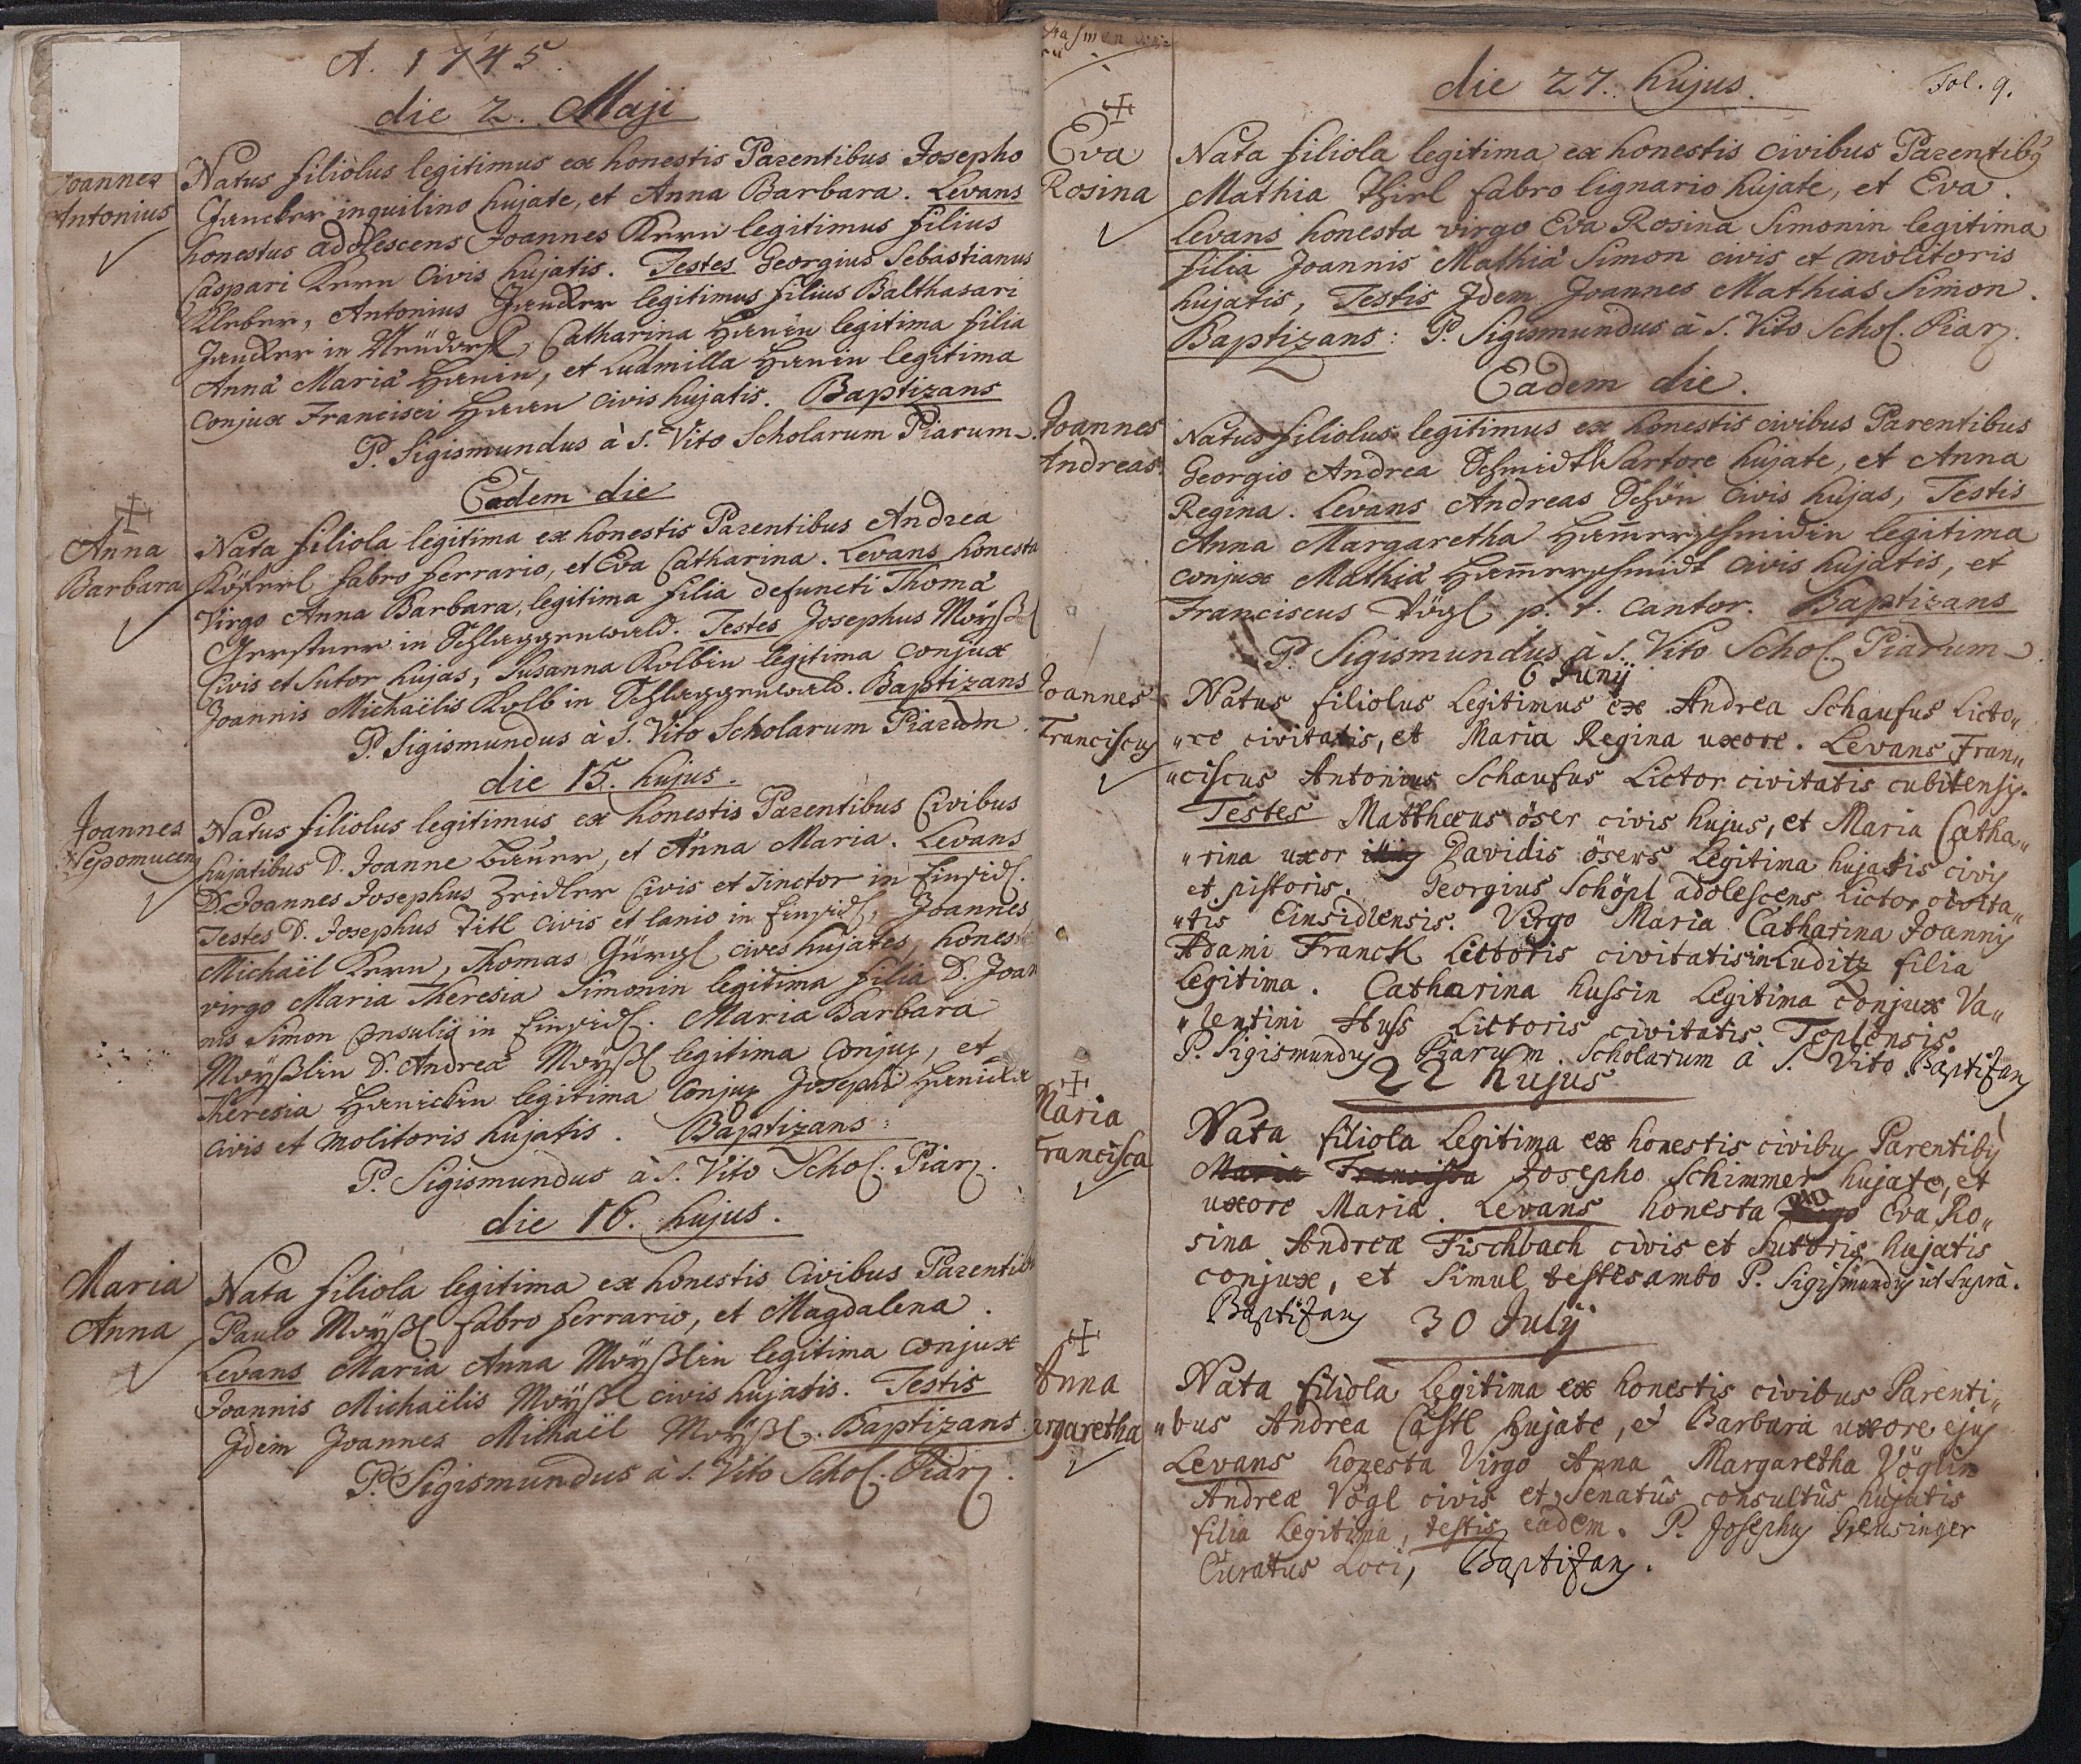 A. 1745.
die 2. Maji
Joannes
Antonius
Natus filiolus legitimus ex honestis Parentibus Josepho
Jancker inquilino hujate, et Anna Barbara. Levans
honestus adolescens Joannes Kern legitimus filius
Caspari Kern Civis hujatis. Testes Georgius Sebastianus
Kleber, Antonius Jancker legitimus filius Balthasari
Jancker in Neüdorf, Catharina Hanin legitima filia
Annâ Mariâ Hanin, et Ludmilla Hanin legitima
conjux Francisci Haan civis hujatis. Baptizans
P. Sigismundus à S. Vito Scholarum Piarum.
Eadem die
Anna
Barbara
Nata filiola legitima ex honestis Parentibus Andrea
Köferl fabro ferrario, et Eva Catharina. Levans honesta
Virgo Anna Barbara, legitima filia defuncti Thomâ
Gerstner in Schlaggenwald. Testes Josephus Moÿßl
Civis et Sutor hujas, Susanna Kolbin legitima conjux
Joannis Michaëlis Kolb in Schlaggenwald. Baptizans
P. Sigismundus à S. Vito Scholarum Piarum.
die 15. hujus.
Joannes
Nepomucenꝰ
Natus filiolus legitimus ex honestis Parentibus Civibus
hujatibus D. Joanne Bauer, et Anna Maria. Levans
D. Joannes Josephus Zeidler Civis et Tinctor in Einsidl.
Testes D. Josephus Titl Civis et lanio in Einsidl, Joannes
Michaël Kern, Thomas Gürgl cives hujates, honest
virgo Maria Theresia Simonin legitima filia D. Joan
nis Simon Consulis in Einsidl. Maria Barbara
Moÿßlin D. Andreâ Moÿßl legitima Conjux, et
Theresia Hanickin legitima Conjux Josephi Hanicka
civis et molitoris hujatis. Baptizans:
P. Sigismundus à S. Vito Schol. Piar.
die 16. hujus.
Maria
Anna
Nata filiola legitima ex honestis Civibus Parentibꝰ
Paulo Moÿßl fabro ferrario, et Magdalena.
Levans Maria Anna Moÿßlin legitima conjux
Joannis Michaëlis Moÿßl civis hujatis. Testis
Jdem Joannes Michaël Moÿßl. Baptizans
P. Sigismundus à S. Vito Schol. Piar.
Fol. 9.
die 27. hujus.
Eva
Rosina
Nata filiola legitima ex honestis civibus Parentibꝰ
Mathia Thirl fabro lignario hujate, et Eva.
Levans honesta virgo Eva Rosina Simonin legitima
filia Joannis Mathiâ Simon civis et molitoris
hujatis, Testis Jdem Joannes Mathias Simon.
Baptizans: P. Sigismundus à S. Vito Schol. Piar.
Eadem die.
Joannes
Andreas
Natus filiolus legitimus ex honestis civibus Parentibus
Georgio Andrea Schmidt Sartore hujate, et Anna
Regina. Levans Andreas Schön civis hujas, Testis
Anna Margaretha Ham̄erschmidin legitima
conjux Mathiâ Ham̄erschmidt civis hujatis, et
Franciscus Vögl p. t. Cantor. Baptizans
P. Sigismundus à S. Vito Schol. Piarum.
6 Junÿ
Joannes
Franciscus
Natus filiolus Legitimus ex Andrea Schaufus Licto„
„re civitatis, et Maria Regina uxore. Levans Fran„
„ciscus Antonius Schaufus Lictor civitatis cubitensis.
Testes Matthæus öser civis hujus, et Maria Catha„
„rina uxor Davidis ösers Legitima hujatis civis
et pistoris. Georgius Schöpl adolescens Lictor civita„
„tis Einsidlensis. Virgo Maria Catharina Joannis
Adami Franck Lictoris civitatis in Luditz filia
Legitima. Catharina hussin Legitima conjux Va„
„lentini Huss Lictoris civitatis Teplensis.
P. Sigismundus Piarum Scholarum à S. Vito Baptizans
22 hujus
Maria
Francisca
Nata filiola Legitima ex honestis civibus Parentibꝰ
Maria Francisca Josepho Schimmer hujate, et
uxore Maria. Levans honesta Eva Ro„
sina Andreæ Fischbach civis et Sutoris hujatis
conjux, et Simul testes ambo P. Sigismundꝰ ut Supra.
Baptizans
30 Julÿ
Anna
argaretha
Nata filiola Legitima ex honestis civibus Parenti„
„bus Andrea Castl hujate, et Barbara uxore ejus
Levans honesta Virgo Anna Margaretha Vöglin
Andreæ Vögl civis et Senatûs consultûs hujatis
filia Legitima, testis eadem. P. Josephus Greusinger
Curatus Loci, Baptizans.